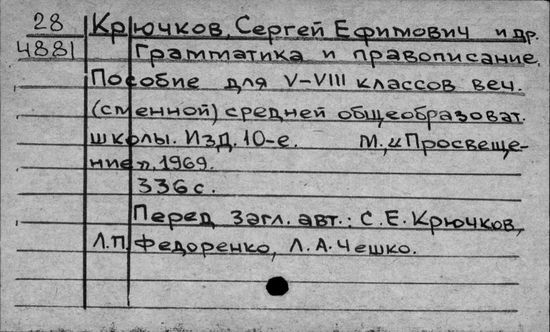 28 Крючков, Сергей Ефимович и др.
4881 Грамматика и правописание.
Пособие для V-VIII классов веч.
(сменной) средней общеобразоват.
школы. Изд. 10-е. М., „Просвеще-
ние", 1969.
336 с.
Перед загл. авт.: С.Е. Крючков,
Л.П. Федоренко, Л.А. Чешко.